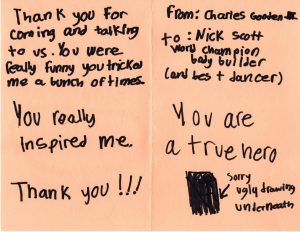 Thank you for
coming and talking
to us. You were
really funny you tricked
me a bunch of times.
You really
inspired me.
Thank you !!!
From: Charles Gooden III
to: Nick Scott
World champion
body builder
(and best dancer)
You are
a true hero
sorry
ugly drawing
underneath